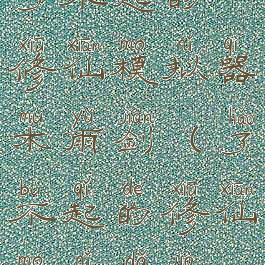 xiū xiān mó nǐ qì
修仙模拟器
mù yǔ jiàn liǎo
木雨剑（了
bù qǐ de xiū xiān
不起的修仙